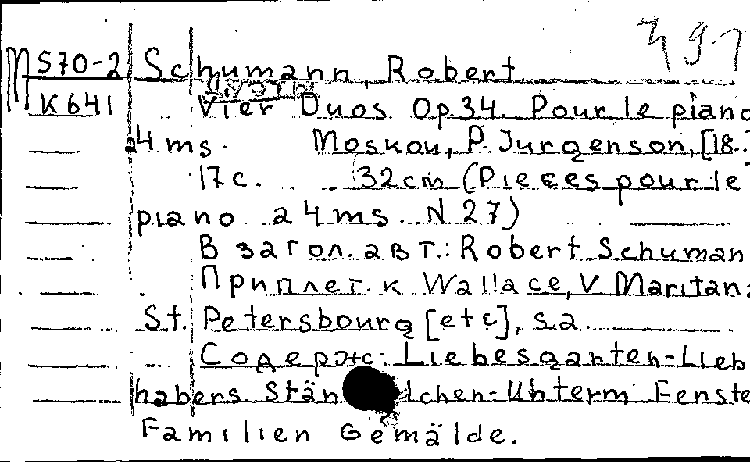 791
M S70-2 Schumann, Robert
K641 Vier Duos Op 34. Pour le piano
a4ms. Moskou, P. Jurgenson, [18..
17c. 32cm (Pieces pour le
piano a 4ms. N 27)
В загол. авт.: Robert Schuman
Приплет. к Wallace, V Maritana
St. Petersbourg [etc], s.a
Содерж: Liebesganten-Lieb
habers Stän dchen-Unterm Fenste
Familien Gemälde.